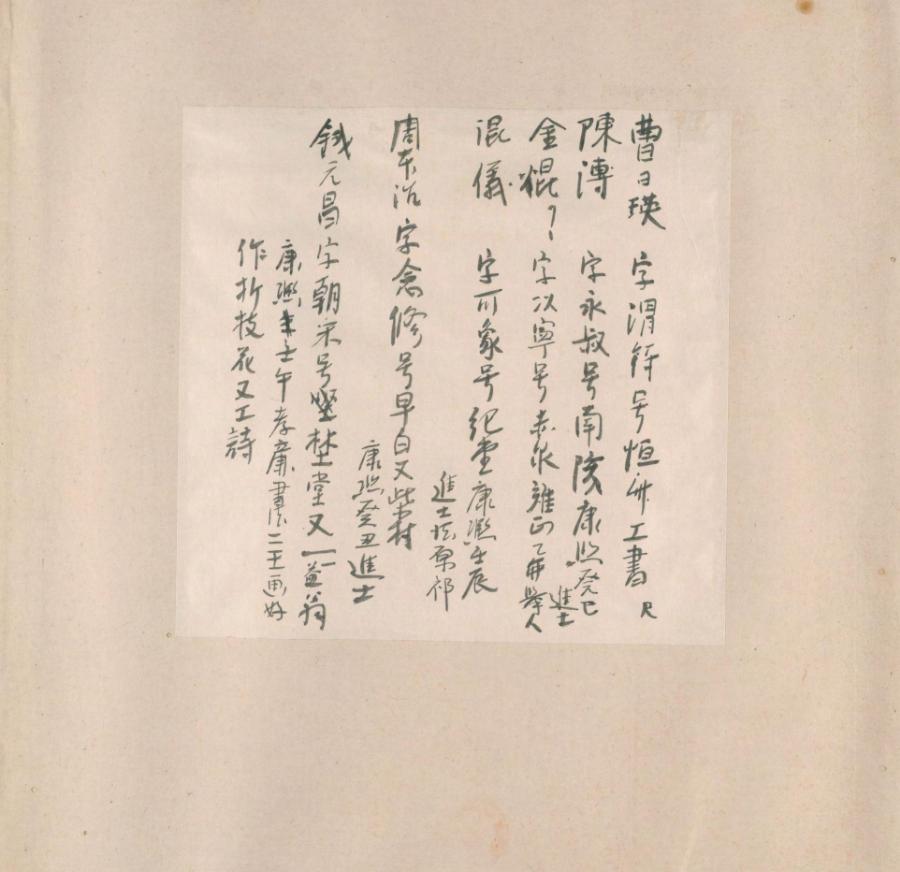 曹日瑛 字渭符号恒斋工書
陳溥 字永叔号南陔康熙癸巳
進士
金焜 字以寧号赤泉雍正乙卯舉人
混儀 字可象号纪堂康熙壬辰
進士
周本治字念修号早白又柴村
康熙癸丑進士
钱元昌字朝采号埜堂又一益翁
康熙壬午孝廉書法二王画好
作折枝花又工詩